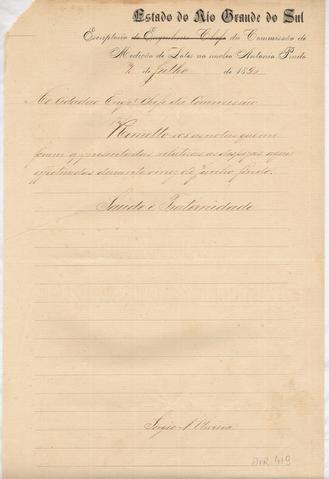 Estado do Rio Grande do Sul
Escriptorio do Engenheiro Chefe da Commissão de
Medição de Lotes no nucleo Antonio Prado
2 de Julho de 189
Ao Cidadão Engr.º Chefe da Commissão
Remetto vos as notas que me
foram apresentadas relativas as despezas aqui
effectuadas durante o mez de Junho findo.
Saude e Fraternidade
Sergio Oliveira
419